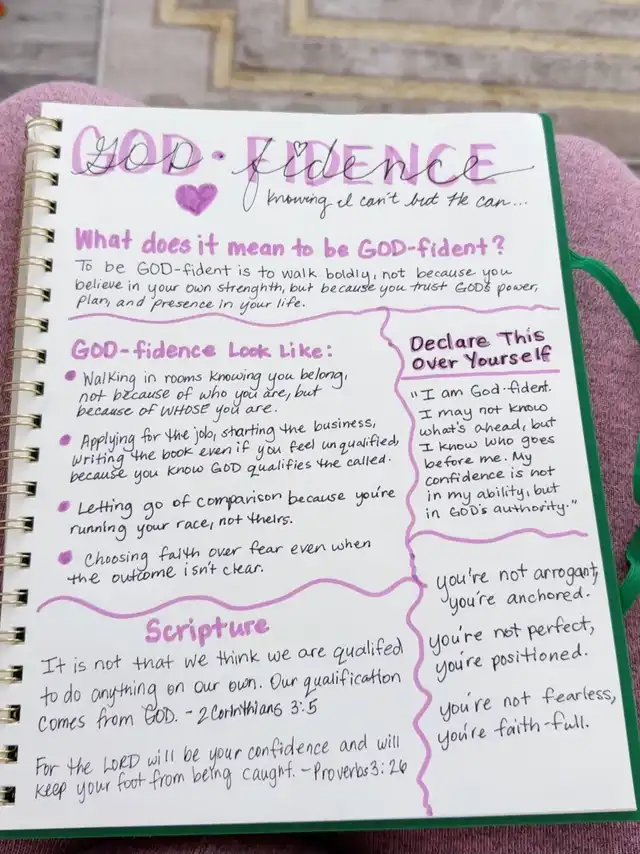 GOD·FIDENCE
GOD·fidence
knowing I can't but He can...
What does it mean to be GOD-fident?
To be GOD-fident is to walk boldly, not because you
believe in your own strenghth, but because you trust GOD's power,
plan, and presence in your life.
GOD-fidence Look Like:
• Walking in rooms knowing you belong,
not because of who you are, but
because of WHOSE you are.
• Applying for the job, starting the business,
writing the book even if you feel unqualified,
because you know GOD qualifies the called.
• Letting go of comparison because you're
running your race, not theirs.
• Choosing faith over fear even when
the outcome isn't clear.
Declare This
Over Yourself
"I am God-fident.
I may not know
what's ahead, but
I know who goes
before me. My
confidence is not
in my ability, but
in GOD's authority."
you're not arrogant,
you're anchored.
you're not perfect,
you're positioned.
you're not fearless,
you're faith-full.
Scripture
It is not that we think we are qualifed
to do anything on our own. Our qualification
comes from GOD. - 2 Corinthians 3:5
For the LORD will be your confidence and will
keep your foot from being caught. - Proverbs 3:26